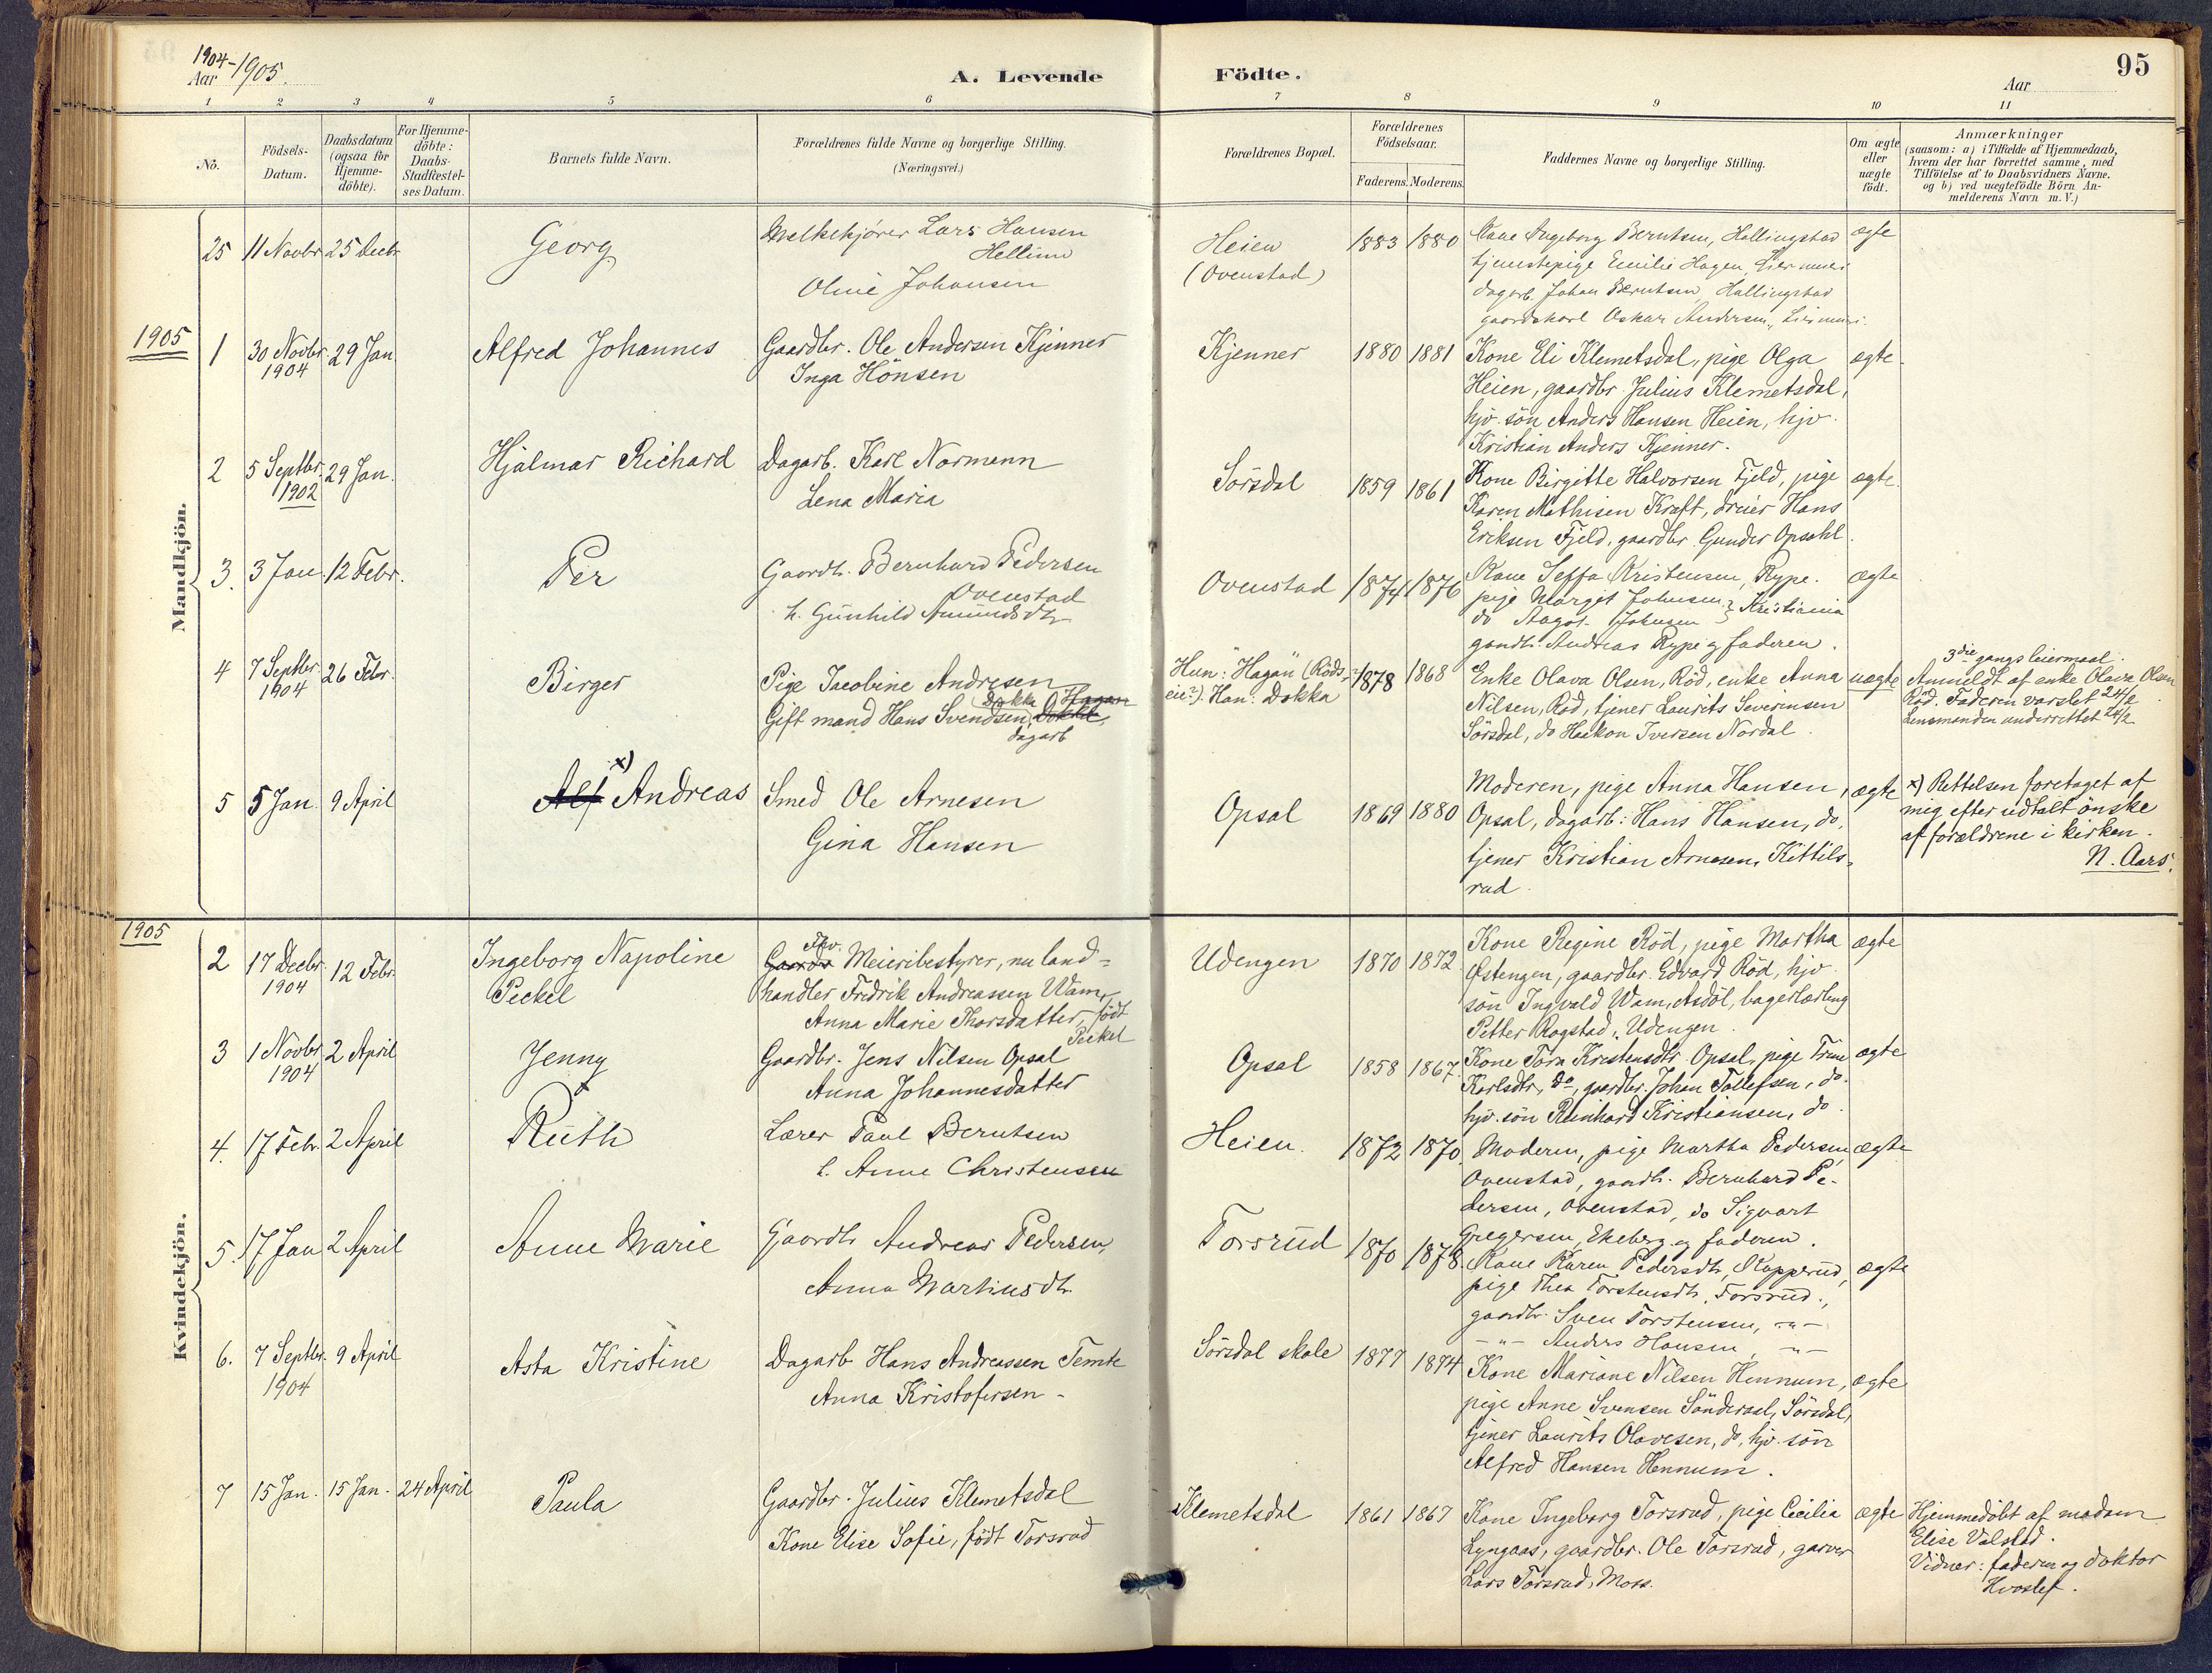 1904-1905.
Aar
A. Levende Födte.
Aar
95
1 2 3 4 5 6 7 8 9 10 11
No.
Födsels-
Datum.
Daabsdatum
(ogsaa for
Hjemme-
döbte).
For Hjemme-
döbte:
Daabs-
Stadfæstel-
ses Datum.
Barnets fulde Navn.
Forældrenes fulde Navne og borgerlige Stilling.
(Næringsvei.)
Forældrenes Bopæl.
Forældrenes
Födselsaar.
Faderens. Moderens.
Faddernes Navne og borgerlige Stilling.
Om ægte
eller
uægte
födt.
Anmærkninger
(saasom: a) i Tilfælde af Hjemmedaab,
hvem der har forrettet samme, med
Tilföielse af to Daabsvidners Navne.
og b) ved uægtefödte Börn An-
melderens Navn m. V.)
Mandkjön.
25 11 Novbr 25 Decbr
Georg
Melkekjører Lars Hansen
Hellum
Oline Johansen
Heien
(Ovenstad)
1883 1880
Kone Ingeborg Berntsen, Hallingstad
tjenestepige Emilie Hagen, Liermoen
dagarb. Johan Berntsen Hallingstad
gaardskarl Oskar Andersen,
ægte
1905
1 30 Novbr. 29 Jan
1904
Alfred Johannes
Gaardbr. Ole Andersen Kjenner
Inga Hönsen
Kjenner
1880 1881
Kone Eli Klemetsdal, pige Olga
Heien, gaardbr Julius Klemetsdal,
hjv. sön Anders Hansen Heien, hjv.
Kristian Anders. Kjenner.
ægte
2 5 Septbr. 29 Jan.
1902
Hjalmar Richard
Dagarb. Karl Normann
Lena Maria
Sörsdal
1859 1861
Kone Birgitte Halvorsen Fjeld, pige
Karen Mathisen Kraft, Hans
Eriksen Fjeld, gaardbr. Gunder Opsahl.
ægte.
3. 3 Jan. 12 Febr.
Per
Gaardb. Bernhard Pedersen
Ovenstad
h. Gunhild Amundsdtr
Ovenstad
1874 1876
Kone Seffa Kristensen, Rype.
pige Margit Johnsen } Kristiania
do Aagot Johnsen
gaardb. Andreas Rype og faderen.
ægte
4 7 Septbr. 26 Febr.
1904
Birger
Pige Jacobine Andresen
Dokka Hagan
Gift mand Hans Svendsen, Dokka,
dagarb
Hun: "Hagan" (Röds-
eie?). Han: Dokka
1878 1868
Enke Olava Olsen, Röd, enke Anna
Nilsen, Röd, tjener Laurits Severinsen
Sörsdal, do Haakon Iversen Nordal.
uægte
3die gangs leiermaal.
Anmeldt af enke Olava Olsen
Röd. Faderen varslet 24/2
Lensmanden underrettet 24/2
5 5 Jan. 9 April
x)
Alf Andreas
Smed Ole Arnesen
Gina Hansen
Opsal
1869 1880
Moderen, pige Anna Hansen,
Opsal, dagarb: Hans Hansen, do.
tjener Kristian Arnesen, Kittils-
rud.
ægte
x) Rettelsen foretaget af
mig efter udtalt önske
af forældrene i kirken.
N. Aars.
1905
Kvindekjön.
2 17 Decbr. 12 Febr.
1904
Ingeborg Napoline
Peckel
Fhv.
Gaards Meieribestyrer, nu land-
handler Fredrik Andreassen Wam,
Anna Marie Thorsdatter, födt
Peckel
Udengen
1870 1872
Kone Regine Röd, pige Martha
Østengen, gaardbr. Edvard Röd, hjv.
sön Ingvald Wam, Asdöl, bagerlærling
Petter Rogstad, Udengen.
ægte
3 1 Novbr 2 April
1904
Jenny
Gaardbr. Jens Nilsen Opsal
Anna Johannesdatter
Opsal
1858 1867.
Kone Torn Kristensdtr. Opsal, pige Trine
Karlsdtr, do, gaardbr. Johan Tollefsen, do.
hjv. sön Reinhard Kristiansen, do.
ægte
4. 17 Febr. 2 April
Ruth
Lærer Paul Berntsen
h. Anne Christensen
Heien.
1872 1870.
Moderen, pige Martha Pedersen,
Ovenstad, gaardb. Bernhard Pe-
dersen, Ovenstad, do Sigvart
Gregersen, Ekeberg og faderen.
ægte
5. 17 Jan 2 April
Anne Marie
Gaardb Andreas Pedersen,
Anna Martinusdtr.
Torsrud
1870 1878.
Kone Karen Pedersdtr, Kopperud,
pige Thea Torstensdtr, Torsrud.,
gaardbr. Sven Torstensen, -"-
-"- Anders Hansen, -"-
ægte
6. 7 Septbr. 9 April
1904
Asta Kristine
Dagarb Hans Andreassen Temte
Anna Kristofersen -
Sörsdal skole
1877 1874
Kone Mariane Nilsen Hennum,
pige Anne Svensen Sörsdal,
tjener Laurits Olavesen, do, hjv. sön
Alfred Hansen Hennum.
ægte
7 15 Jan. 15 Jan. 24 April
Paula
Gaardbr. Julius Klemetsdal
Kone Elise Sofie, födt Torsrud
Klemetsdal
1861 1867
Kone Ingeborg Torsrud, pige Cecilia
Lyngaas, gaardbr. Ole Torsrud, garver
Lars Torsrud, Moss.
ægte
Hjemmedöbt af madam
Elise Valstad.
Vidner: faderen og doktor
Hvoslef.